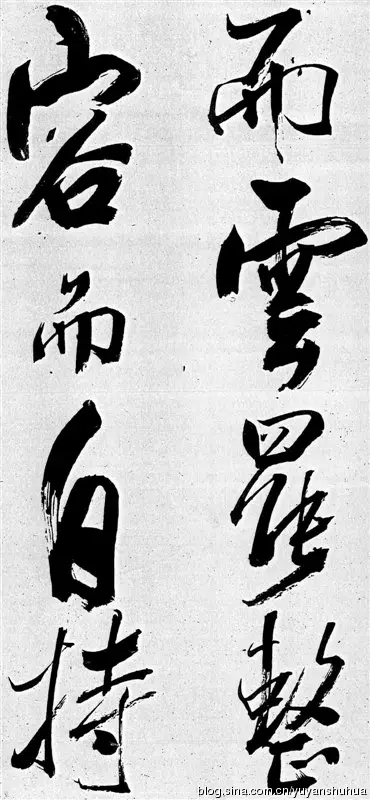 而雲罷整
容而自持
blog.sina.com.cn/yuyanshuhua